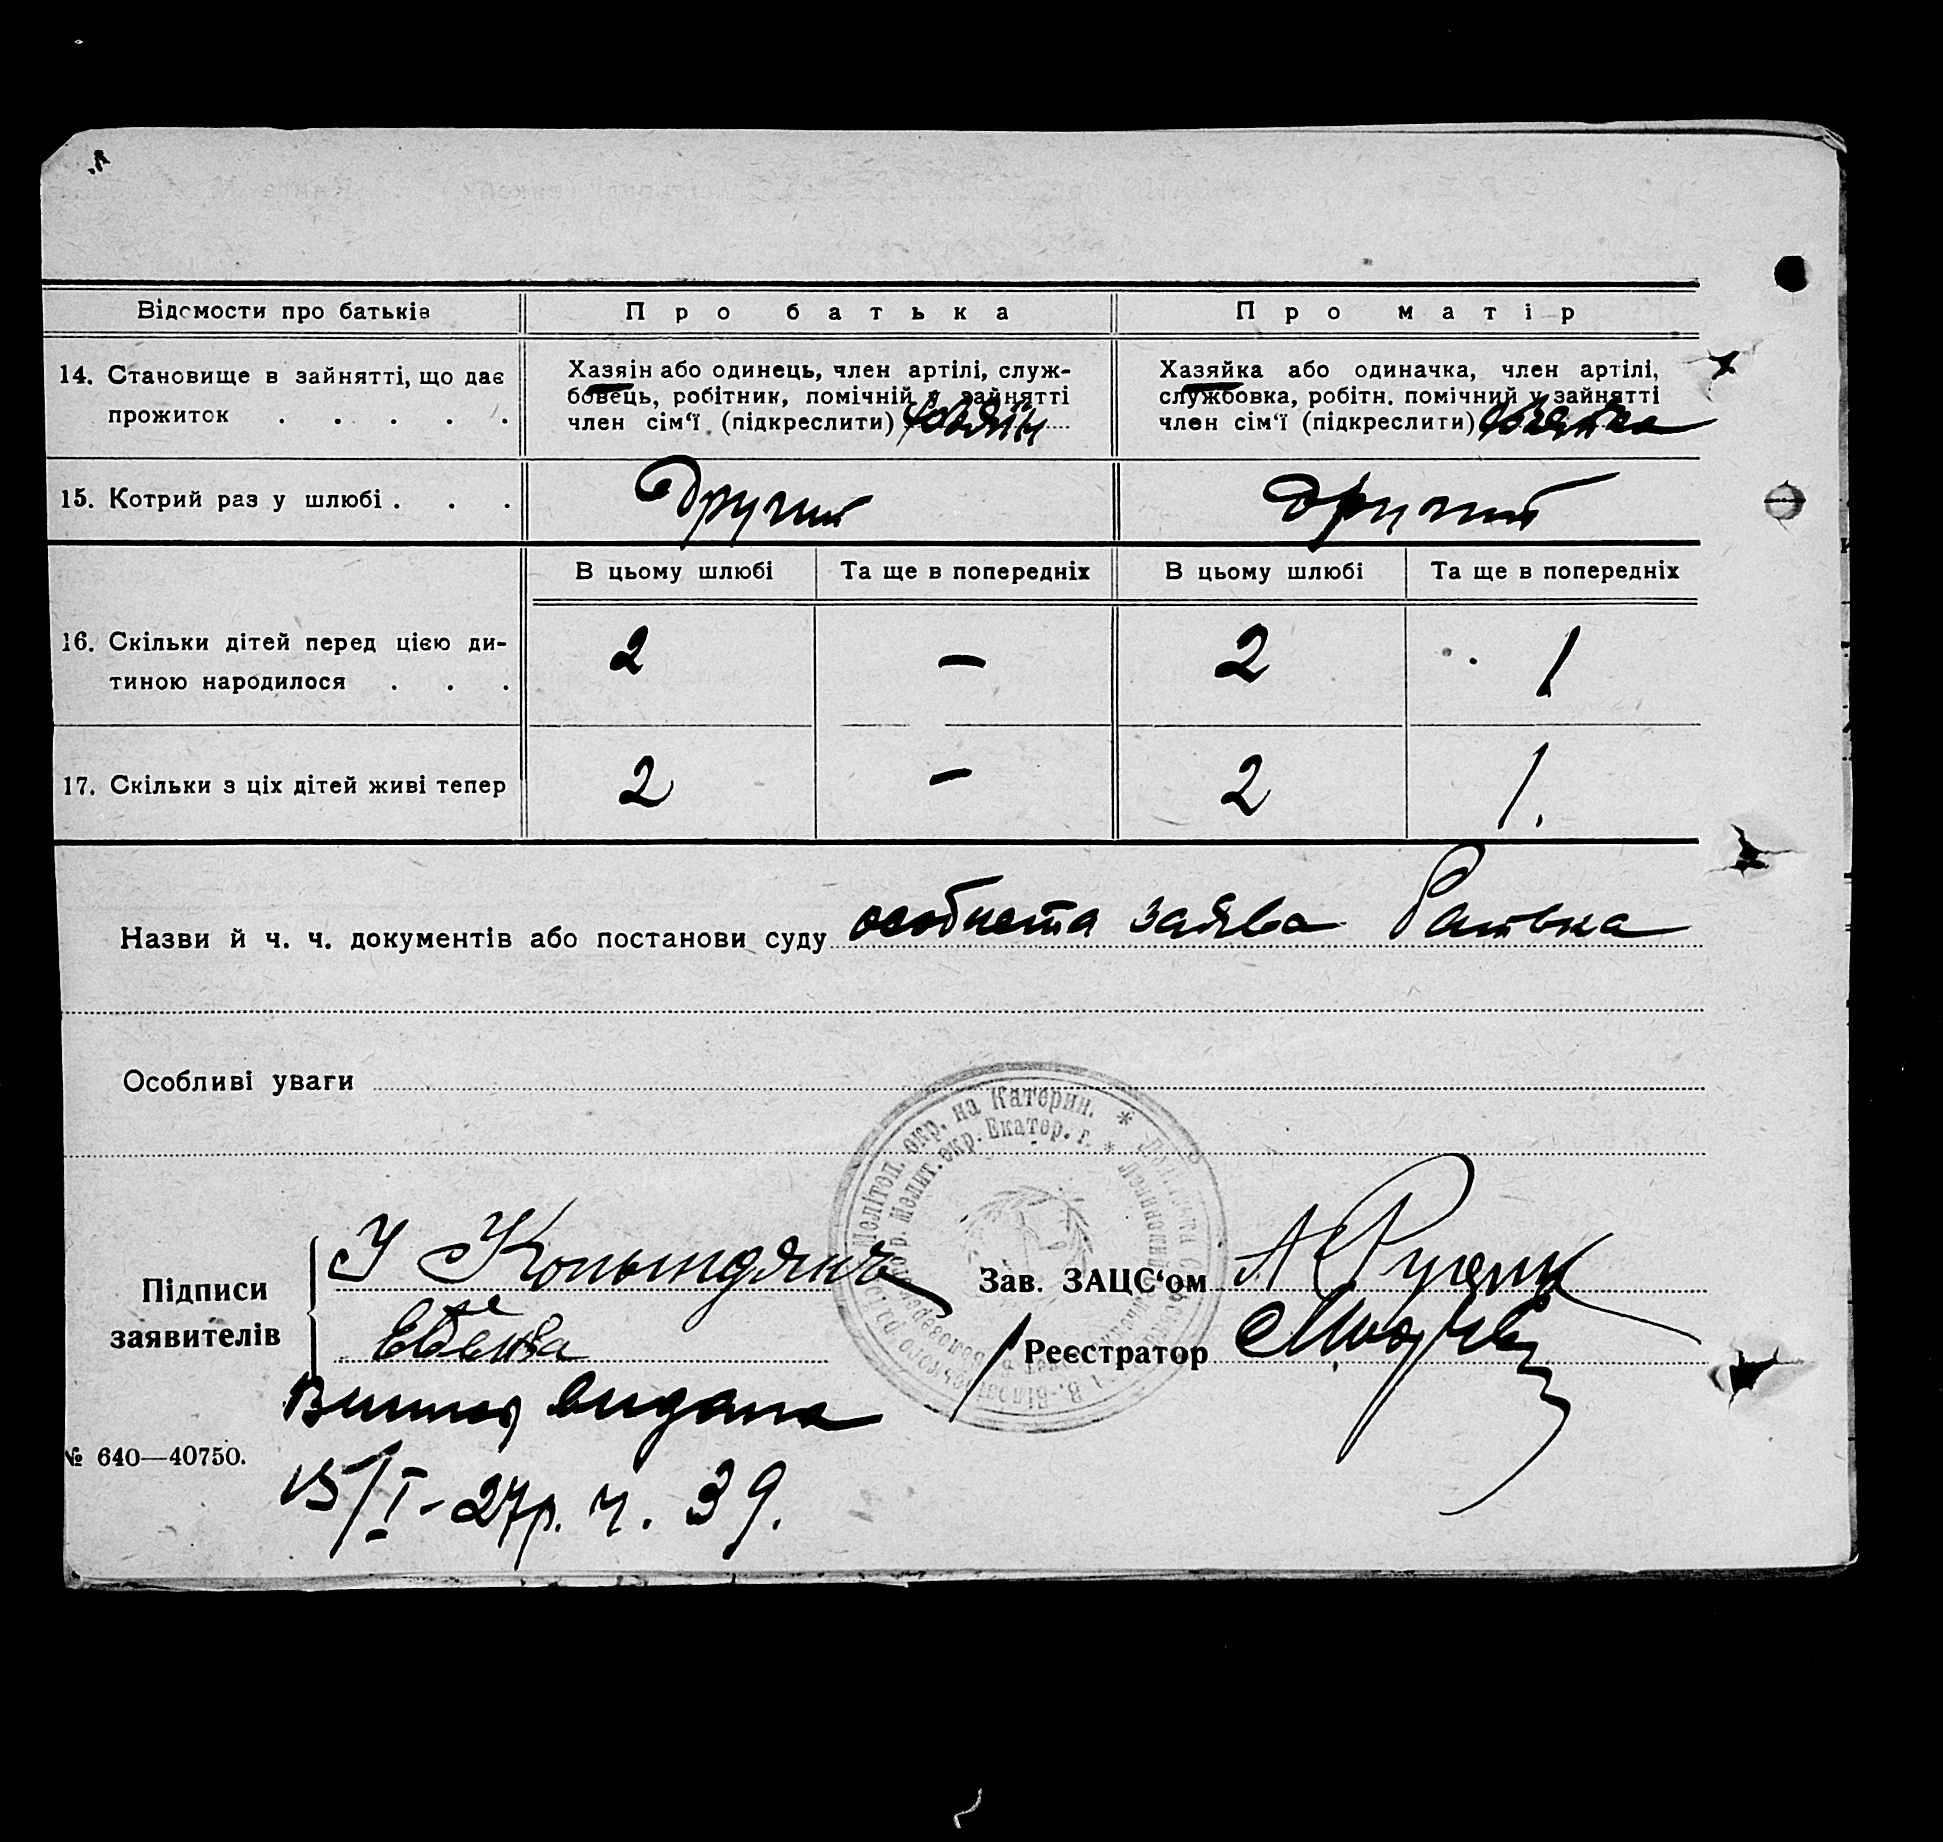 Відомости про батьків
Про батька
Про матір
14. Становище в зайнятті, що дає
прожиток . . . . .
Хазяін або одинець, член артілі, служ-
бовець, робітник, помічній у зайнятті
член сім'ї (підкреслити) хазяїн
Хазяйка або одиначка, член артілі,
службовка, робітн. помічний у зайнятті
член сім'ї (підкреслити) хазяйка
15. Котрий раз у шлюбі . . .
Другий
другий
В цьому шлюбі
Та ще в попередніх
В цьому шлюбі
Та ще в попередніх
16. Скільки дітей перед цією ди-
тиною народилося . . .
2 – 2 1
17. Скільки з ціх дітей живі тепер
2 – 2 1.
Назви й ч. ч. документів або постанови суду особиста заява Батька
Особливі уваги
Мелітоп. окр. на Катерин. *
Мелит. окр. Екатер. г. *
Підписи
заявителів
Зав. ЗАЦС'ом
Реєстратор
видана
№ 640—40750.
15/I-27р. ч. 39.